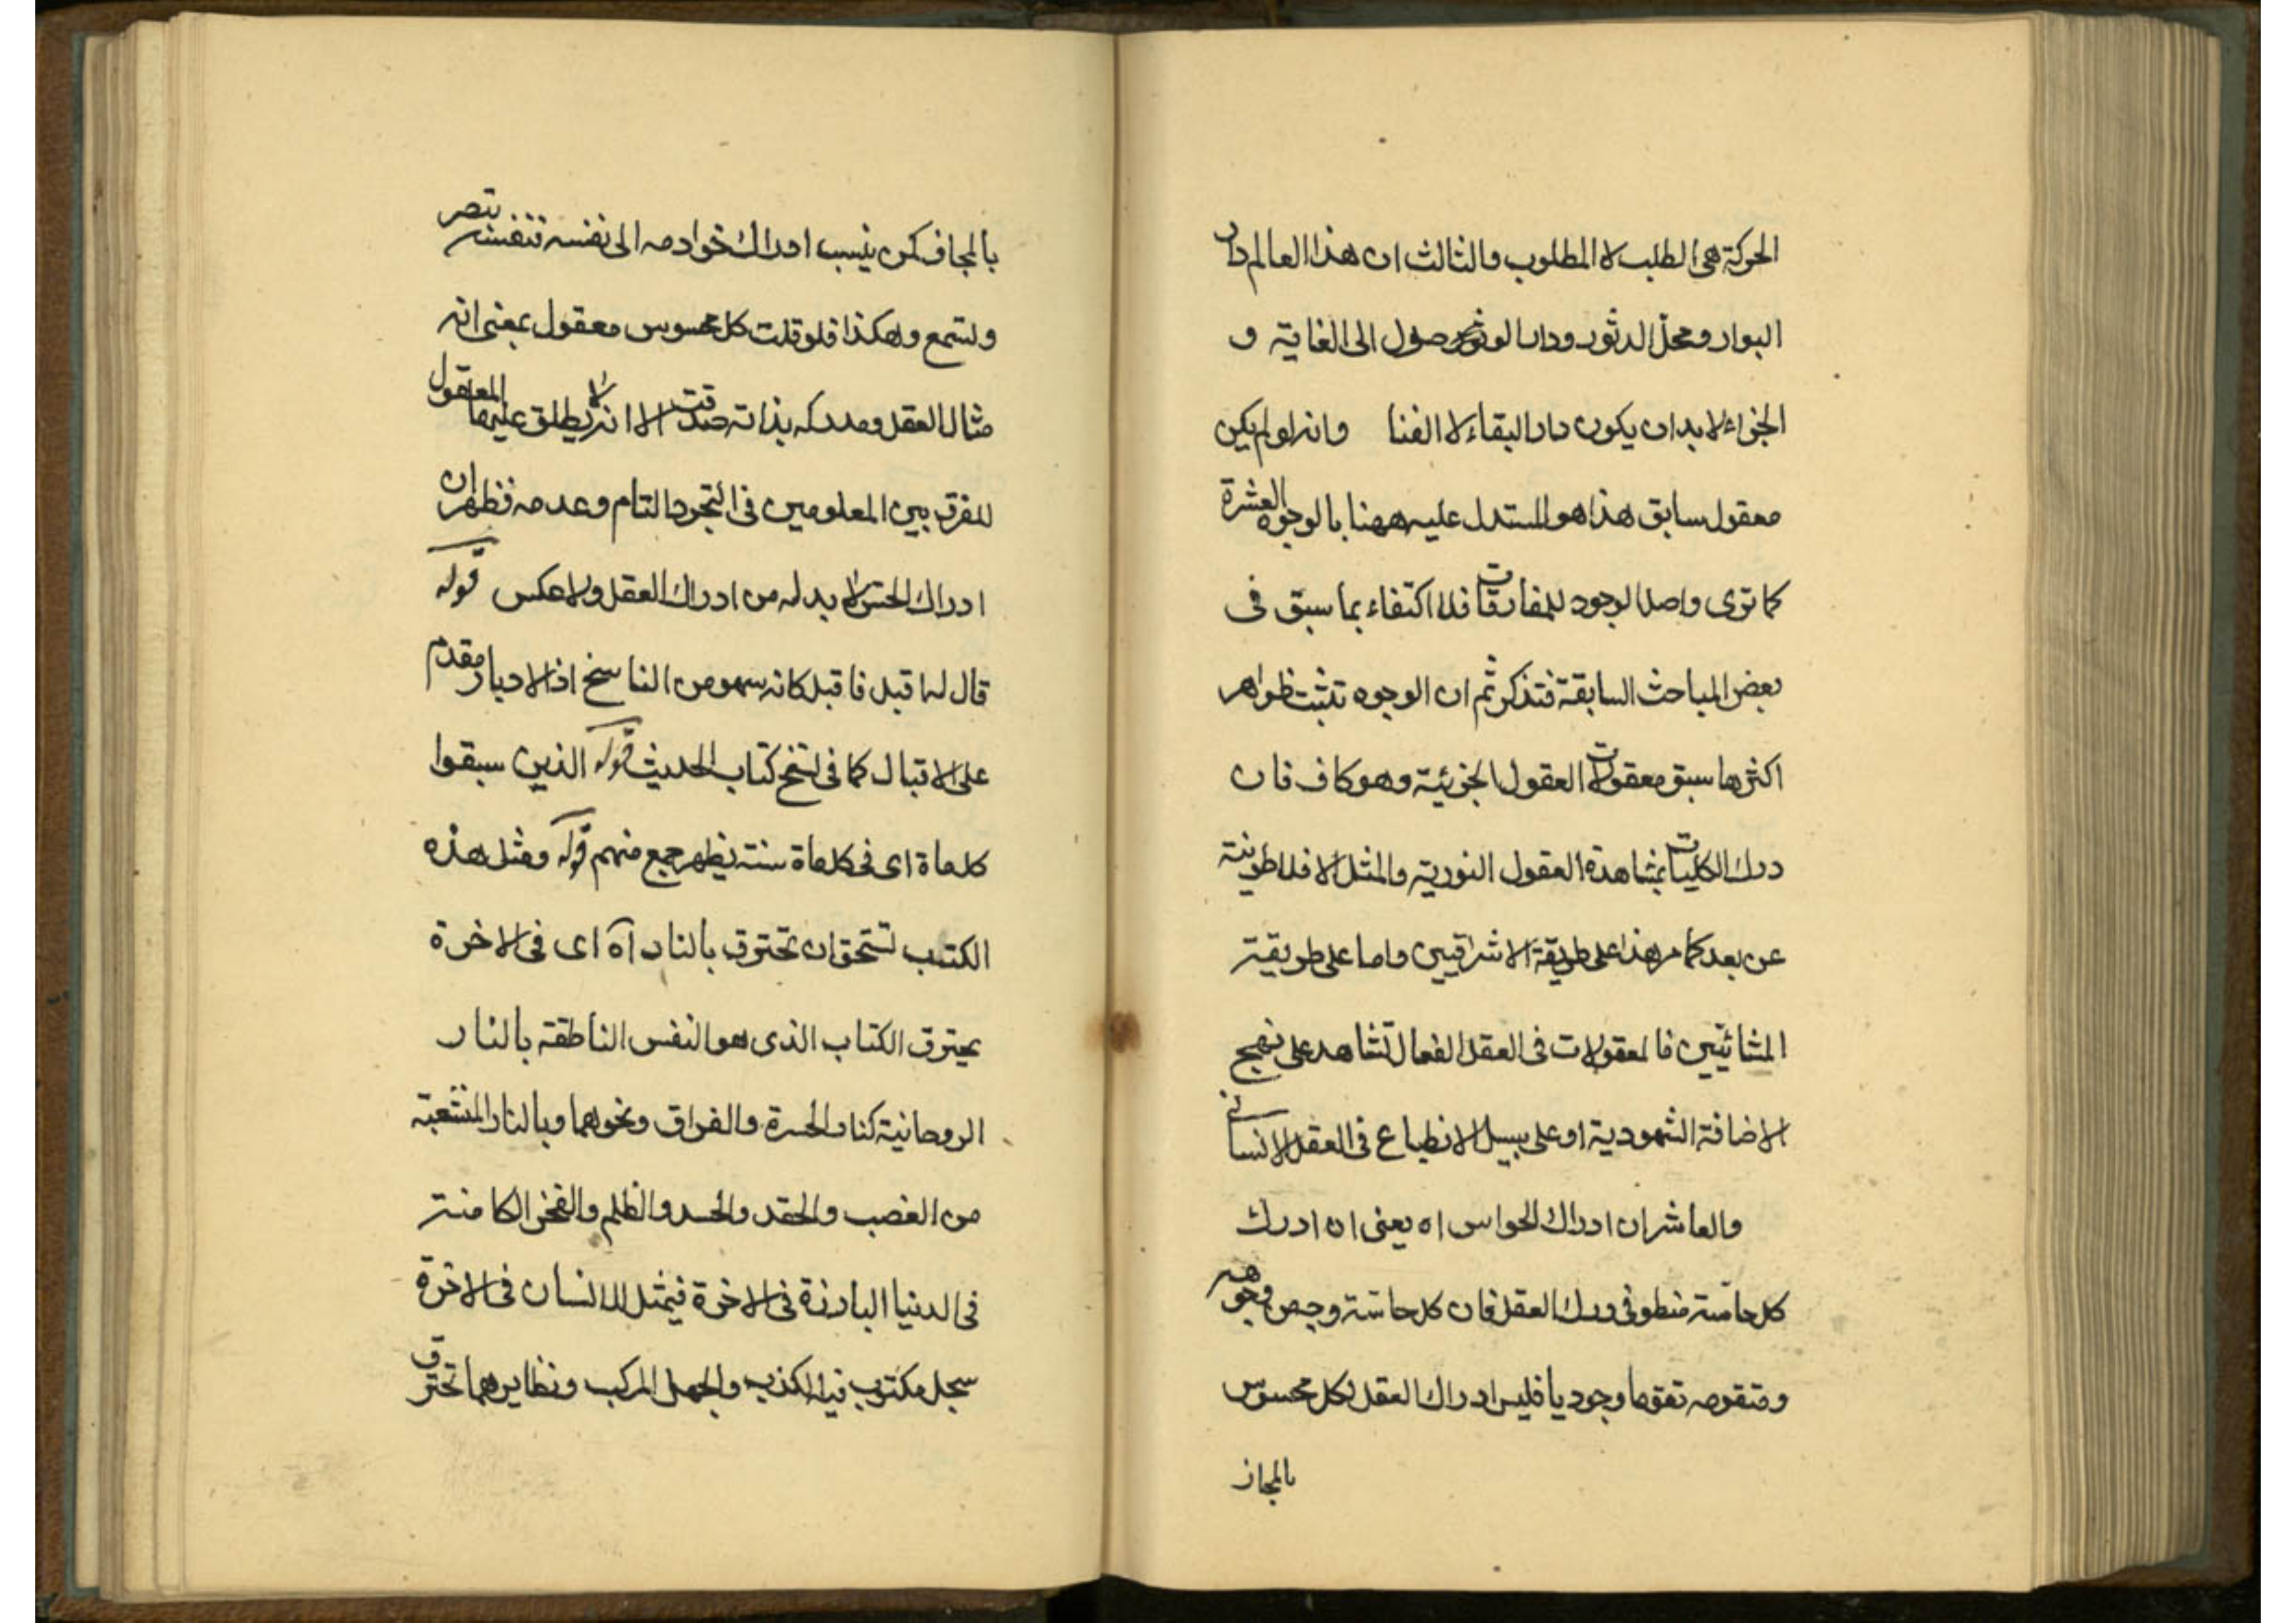 الحركة هى الطلب لا المطلوب والثالث ان هذا العالم دار
البوار ومحل الدثور ودار الوصول الى الغاية و
الجزاء لابد ان يكون دار البقاء لا الفنا وانه لو لم يكن
معقول سابق هذا هو المستدل عليه ههنا بالوجوه العشرة
كما ترى واصل الوجود للمفارقات فلا اكتفاء بما سبق فى
بعض المباحث السابقة فتذكر ثم ان الوجوه تثبت ظواهر
اكثرها سبق معقولات العقول الجزئية وهو كاف فان
درك الكليات بمشاهدة العقول النورية والمثل الافلاطونية
عن بعد كما مر هذا على طريقة الاشراقيين واما على طريقة
المشائيين فالمعقولات فى العقل الفعال تشاهد على نهج
الاضافة الشهودية او على سبيل الانطباع فى العقل الانسانى
والعاشر ان ادراك الحواس اه يعنى ان ادرك
كل حاسة منطو فى درك العقل فان كل حاسة وجه من وجوهه
ومتقومه تقوما وجوديا فليس ادراك العقل لكل محسوس
بالمجاز
بالمجاز كمن ينسب ادراك خوادمه الى نفسه تبصر
وتسمع وهكذا فلو قلت كل محسوس معقول بمعنى انه
مثال العقل ومدركه بذاته صدقت الا انه لا يطلق عليها المعقول
للفرق بين المعلومين فى التجرد التام وعدمه فظهر ان
ادراك الحس لا بد له من ادراك العقل ولا عكس قوله
قال له اقبل فاقبل كانه سهو من الناسخ اذ الادبار مقدم
على الاقبال كما فى نسخ كتاب الحديث قوله الذين سبقوا
كل ماة اى فى كل ماة سنة يظهر جمع منهم قوله ومثل هذه
الكتب تستحق ان تحترق بالنار آه اى فى الاخرة
يحترق الكتاب الذى هو النفس الناطقة بالنار
الروحانية كنار الحسرة والفراق ونحوهما وبالنار المنشعبة
من الغضب والحقد والحسد والظلم والفخر الكامنة
فى الدنيا البارزة فى الاخرة فيمثل للانسان فى الاخرة
سجل مكتوب فيه الكذب والجهل المركب ونظايرهما تحترق